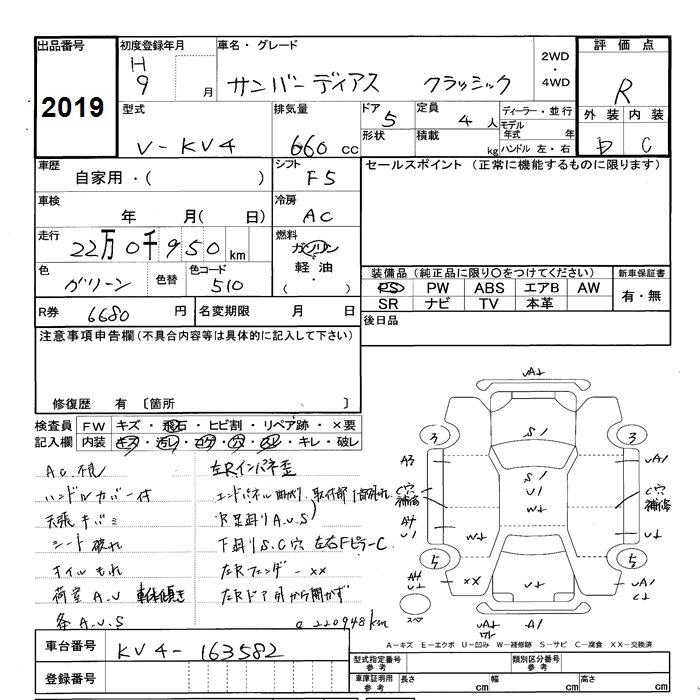 出品番号 初度登録年月 車名・グレード 2WD・4WD 評価点
2019 H 9 月 サンバーディアス クラシック R
型式 排気量 ドア 5 定員 4 人 ディーラー・並行 外装 内装
V-KV4 660 cc 形状 積載 kg モデル年式 年 ハンドル 左・右 D C
車歴 シフト セールスポイント(正常に機能するものに限ります)
自家用・( ) F5
車検 冷房
年 月( 日) AC
走行 燃料
22万0千950 km ガソリン
色 色替 色コード 軽油 装備品(純正品に限り○をつけてください) 新車保証書
グリーン 510 ・( ) PS PW ABS エアB AW 有・無
R券 6680 円 名変期限 月 日 SR ナビ TV 本革
注意事項申告欄(不具合内容等は具体的に記入して下さい) 後日品
修復歴 有 〔箇所 〕
検査員 FW キズ・飛石・ヒビ割・リペア跡・×要
記入欄 内装 キズ・汚レ・コゲ・穴・スレ・キレ・破レ
AC不良 左Rインパネ歪
ハンドルカバー付 エンドパネル曲がり、取付部1部外れ
天張キバミ R足廻りA.U.S
シート破れ 下廻りS.C穴 左右FピラーC
オイルもれ 左Rフェンダーxx
荷室A.U 車体傾き 左Rドア外から開かず
各A.U.S @220948km
UA+
3 S1 3
A3 UA1
S1
U1 C穴 補修
C穴 補修
W+
A4
U1 U+
W+
5 5
XX U+ UA1
A4 C+
U+
スペア
UA+ A1
W+
A-キズ E-エクボ U-凹み W-補修跡 S-サビ C-腐食 XX-交換済
車台番号 KV4-163582 型式指定番号 参考 類別区分番号 参考
登録番号 車庫証明用 参考 長さ cm 幅 cm 高さ cm